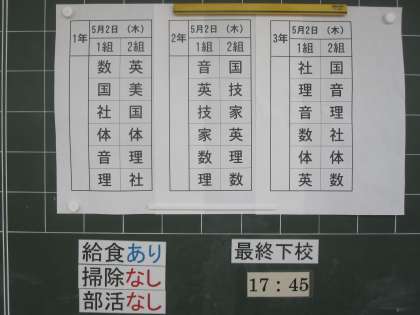 1年 5月2日 (木)
1組 2組
数 英
国 美
社 国
体 体
音 理
理 社
2年 5月2日 (木)
1組 2組
音 国
英 技
技 家
家 英
数 理
理 数
3年 5月2日 (木)
1組 2組
社 国
理 音
音 理
数 社
体 体
英 数
給食あり
掃除なし
部活なし
最終下校
17:45